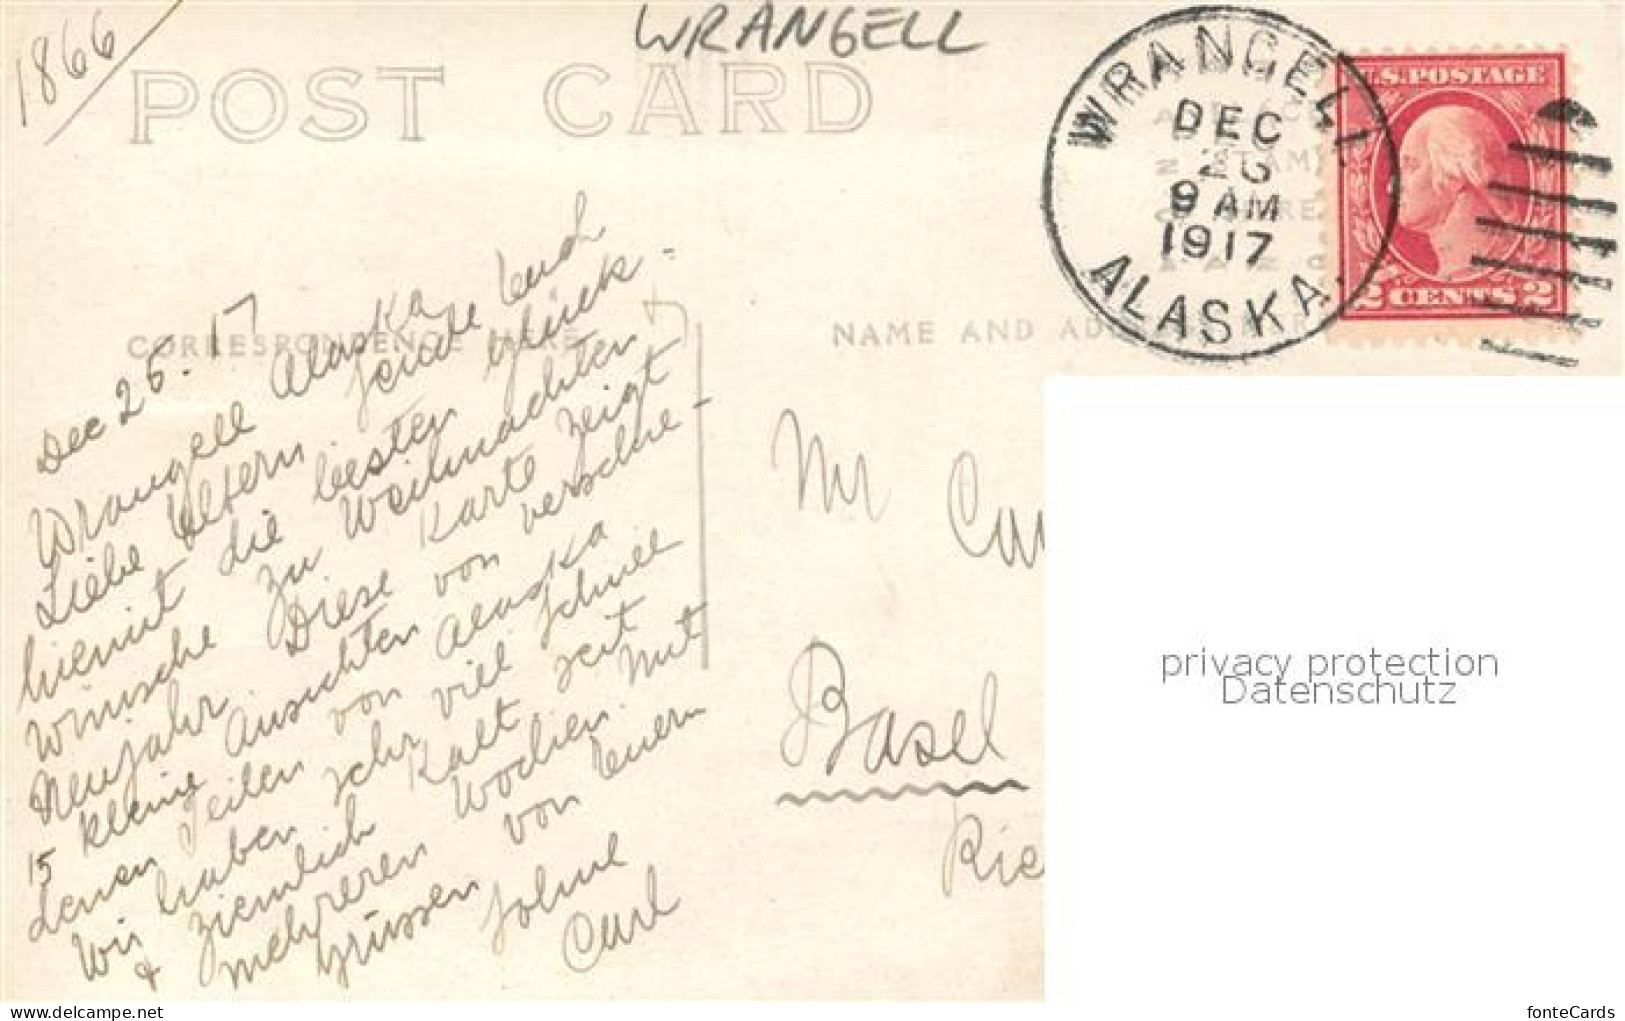 1866
WRANGELL
POST CARD
WRANGELL
DEC
26
9 AM
1917
ALASKA.
U.S. POSTAGE
2 CENTS 2
CORRESPONDENCE HERE
NAME AND ADDRESS HERE
Dec 26. 17
Wrangell Alaska
Liebe Eltern sende Euch
hiemit die besten Glück-
wünsche zu Weihnachten
Neujahr Diese Karte zeigt
15 kleine Ansichten von verschie-
denen Teilen von Alaska
Wir haben sehr viel schnee
& ziemlich kalt seit
mehreren Wochen. Mit
Grüssen von Euern
Sohne
Carl
Mr Car
Basel
Rie
privacy protection
Datenschutz
www.delcampe.net
fonteCards